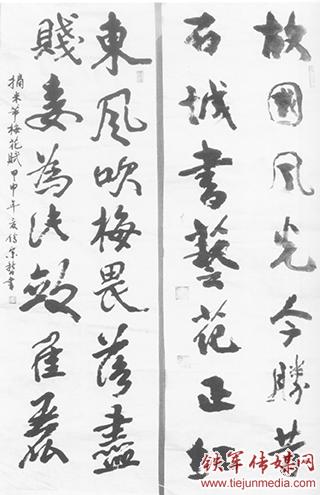 故國風光今勝昔
石城書藝花正紅
東風吹梅畏落盡
賤妾為 斂
摘米芾梅花賦 甲申年夏 傅宗哲書
铁军传媒网
www.tiejunmedia.com